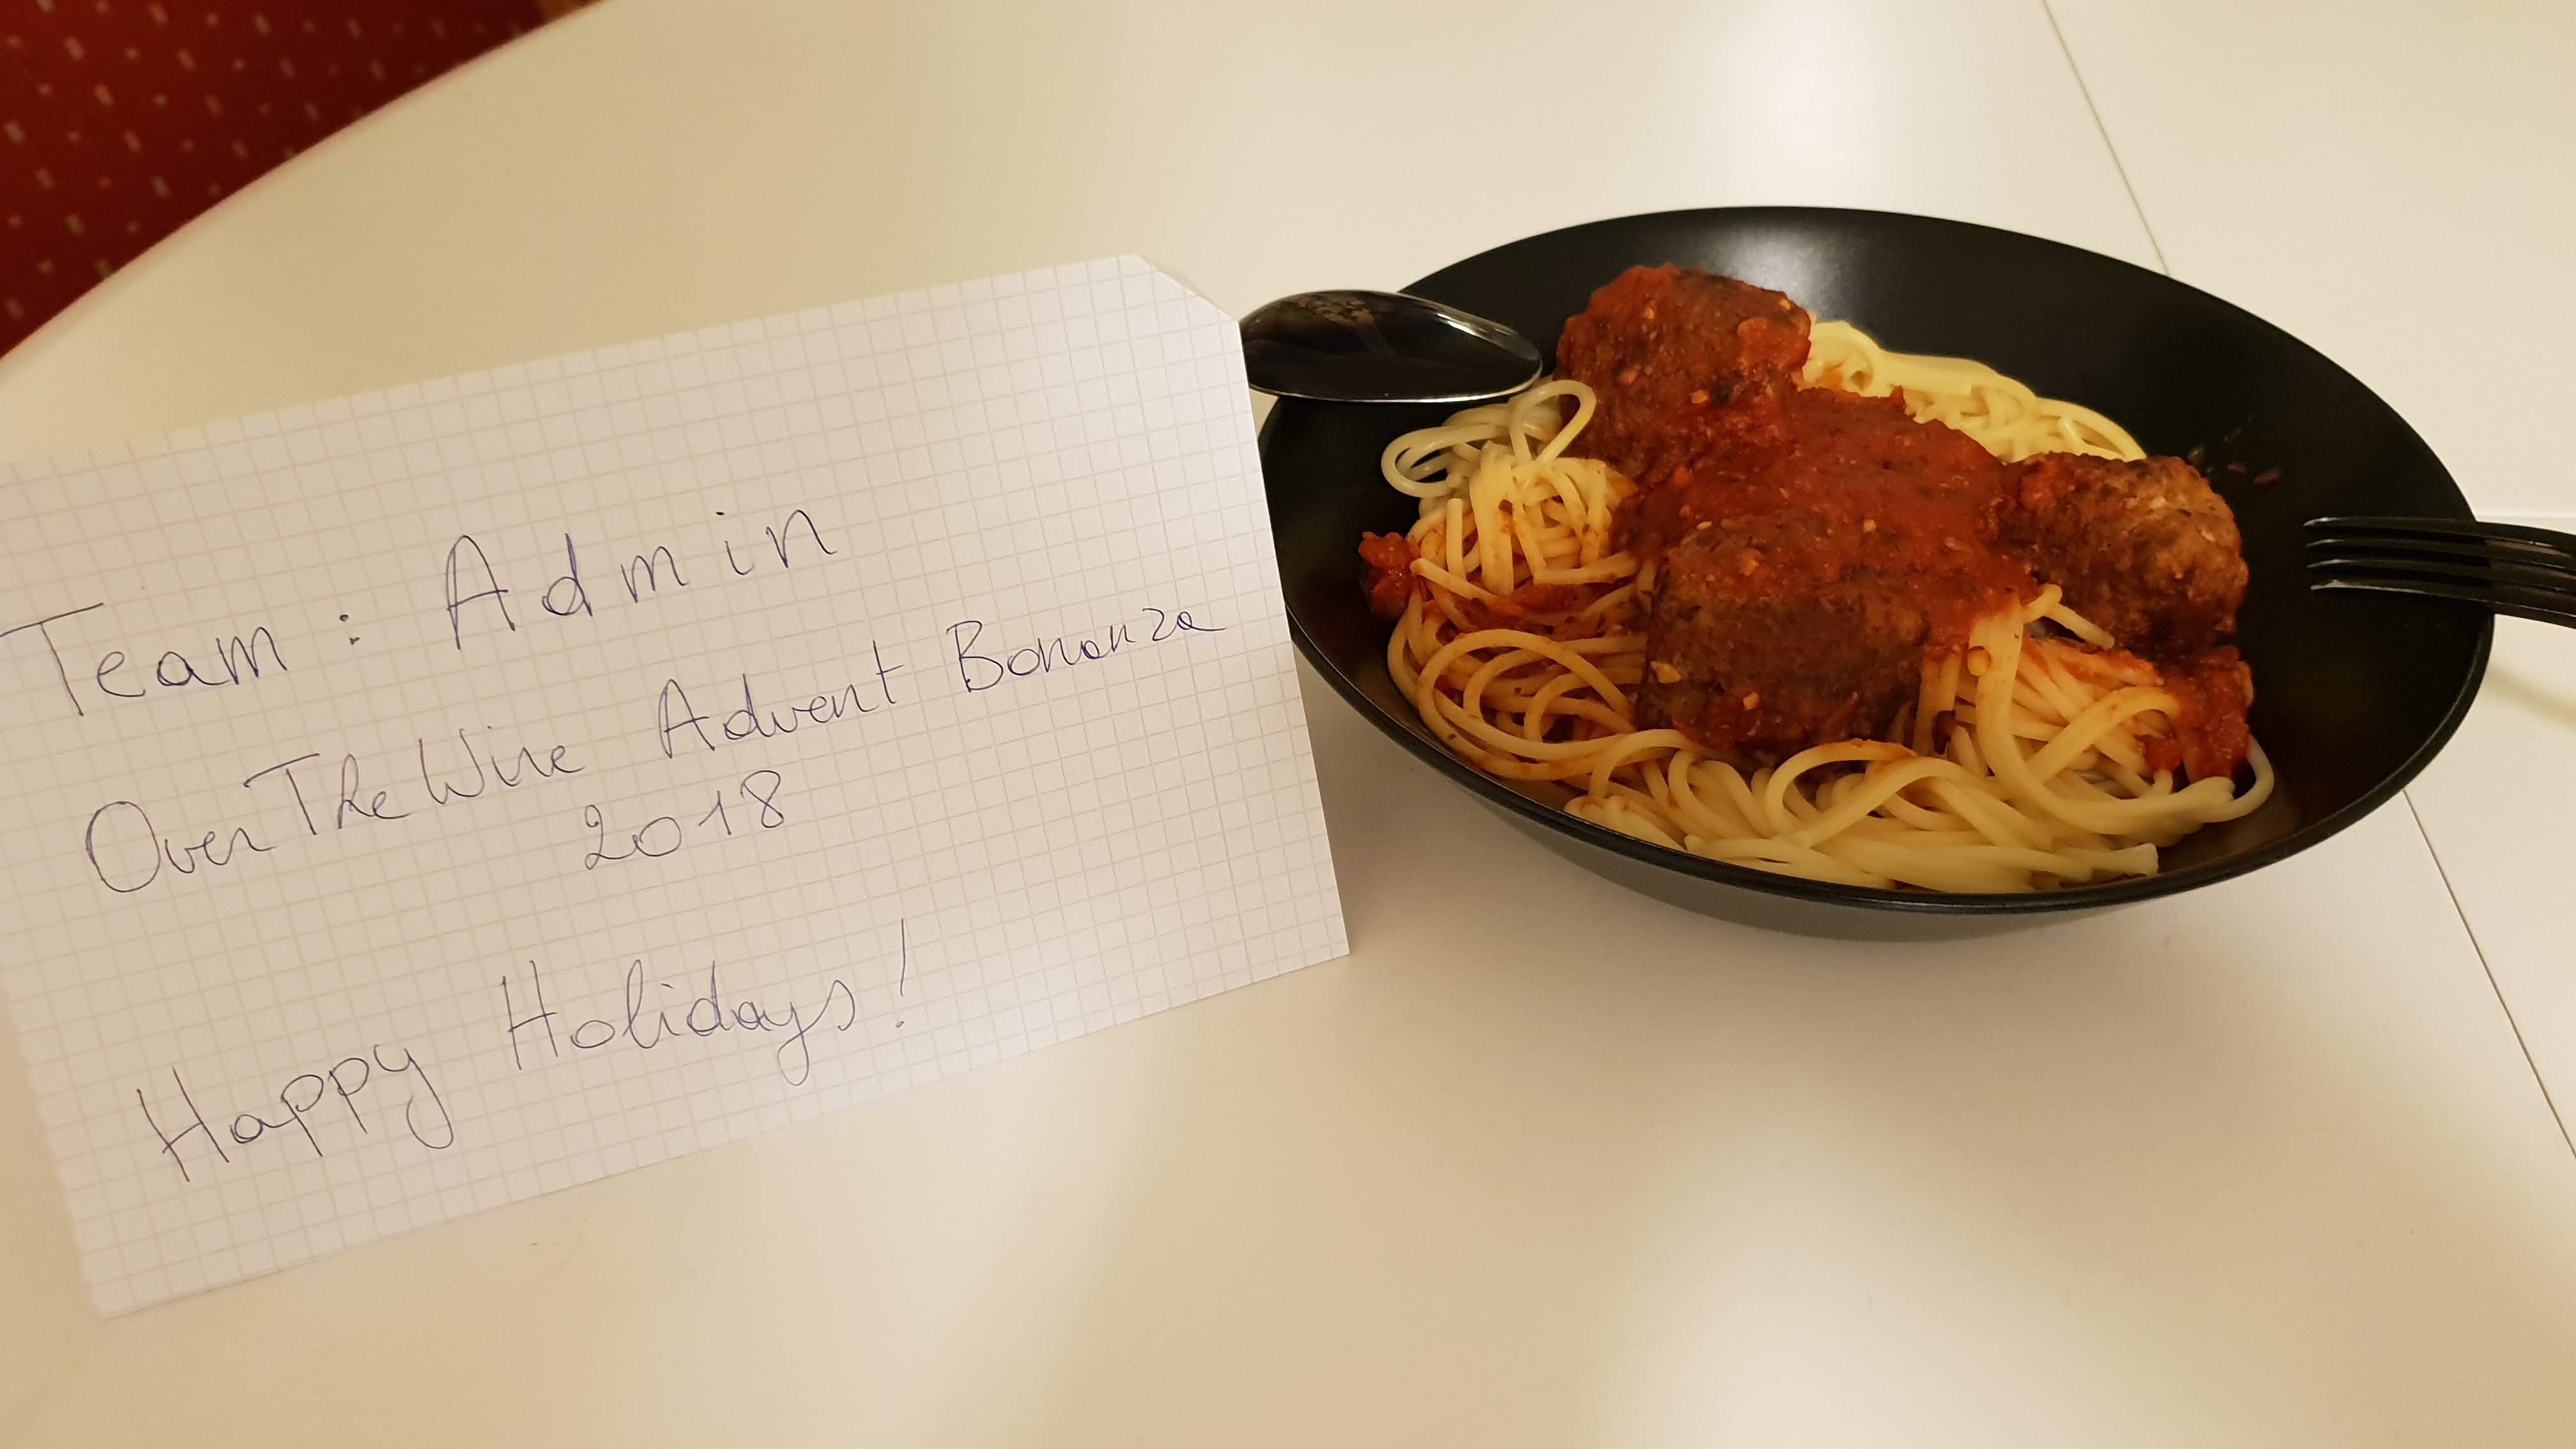 Team: Admin
OverTheWire Advent Bonanza
2018
Happy Holidays!